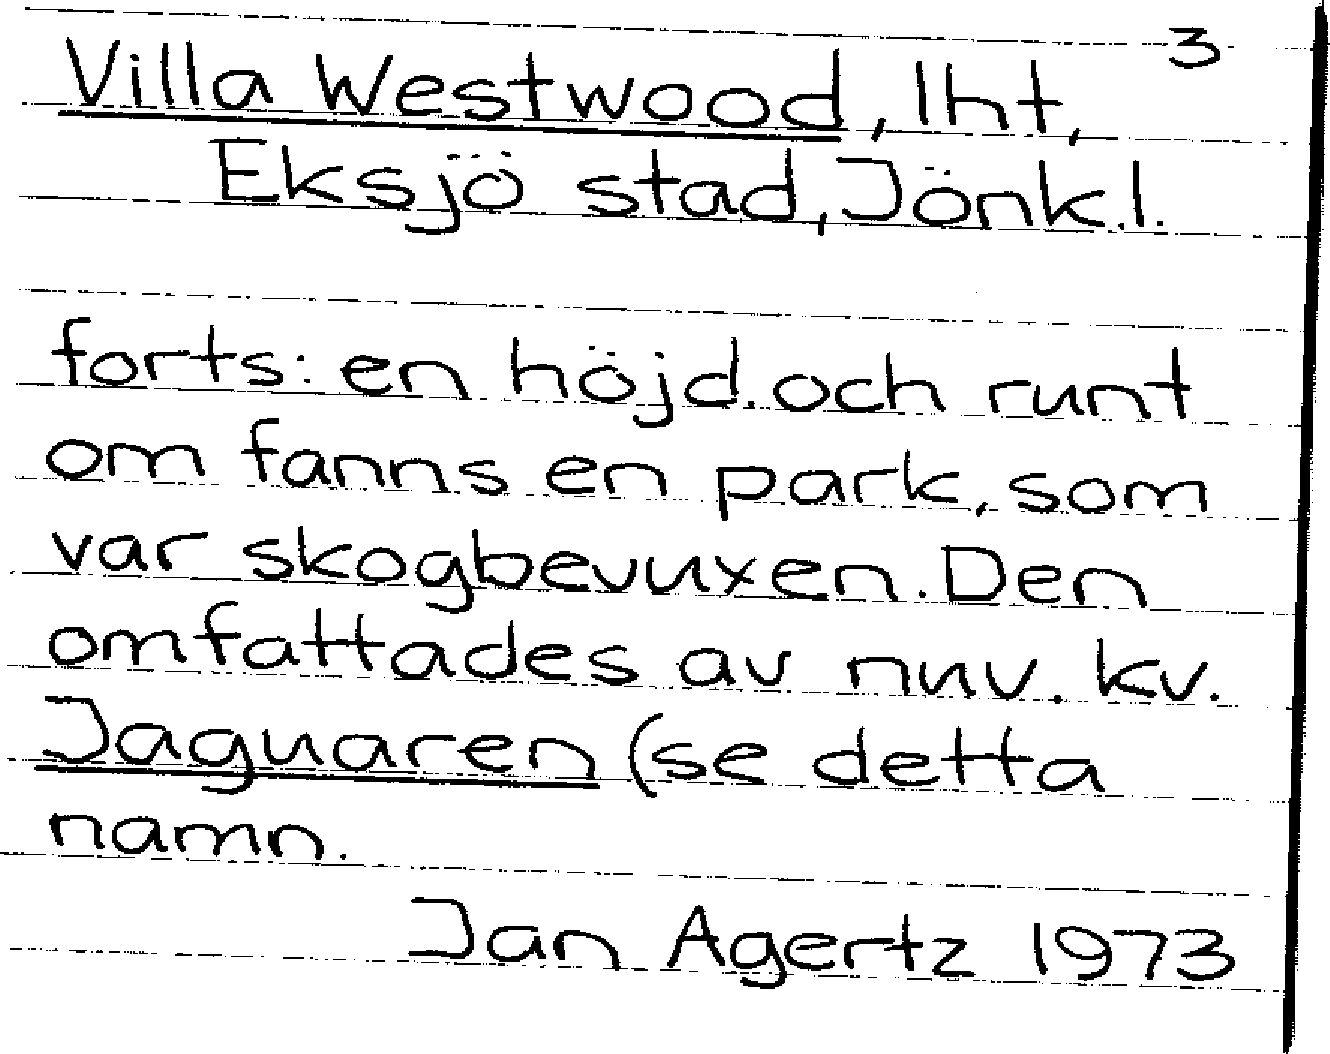 3
Villa Westwood, lht,
Eksjö stad, Jönk.l.
forts: en höjd. och runt
om fanns en park, som
var skogbevuxen. Den
omfattades av nuv. kv.
Jaguaren (se detta
namn.
Jan Agertz 1973